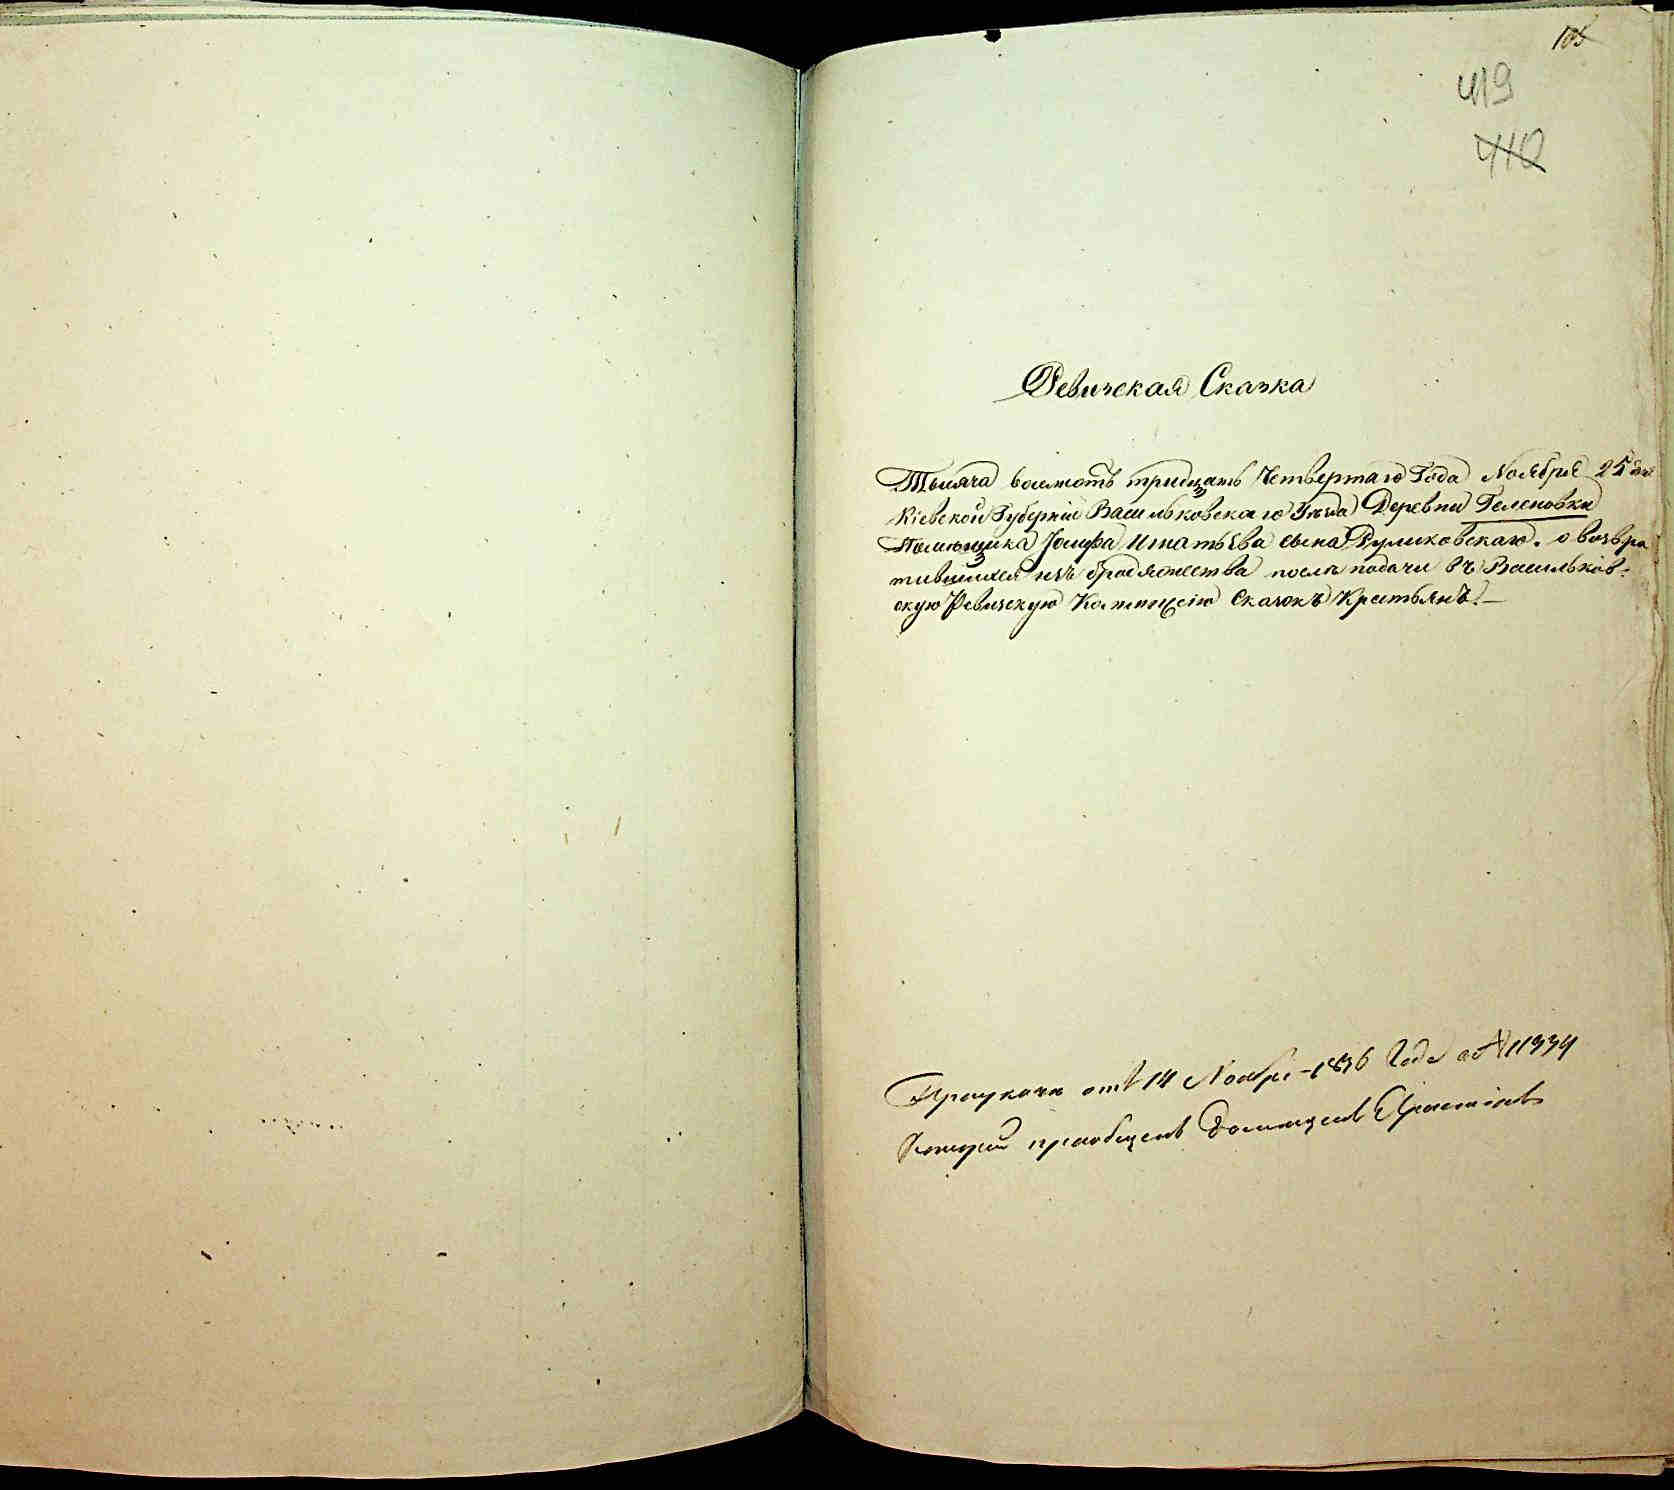 105
419
410
Ревизская Сказка
Тысяча восемсотъ тридцать Четвертаго Года Ноября 25 дня
Кіевской Губерніи Васильковскаго Уезда Деревни Геленовки
Помещика Іосифа Игнатьева сына Руликовскаго. о возвра
тившихся изъ бродяжества после подачи въ Васильков-
скую Ревизскую Коммисію Сказокъ Крестьянъ.
отъ 14 Ноябр. 1836 Года за № 11334